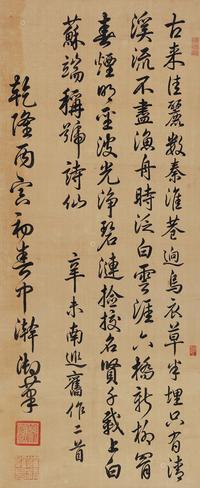 古来佳麗數秦淮巷逈烏衣草半埋只有清
溪流不盡漁舟時泛白雲涯六橋新柳罥
春煙明聖波光淨碧漣撿挍名賢千載上白
蘇端稱號詩仙 辛未南巡舊作二首
乾隆丙寅初春中澣御筆